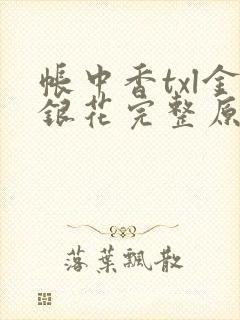 帳中香txl金
銀花完整原
落葉飄散